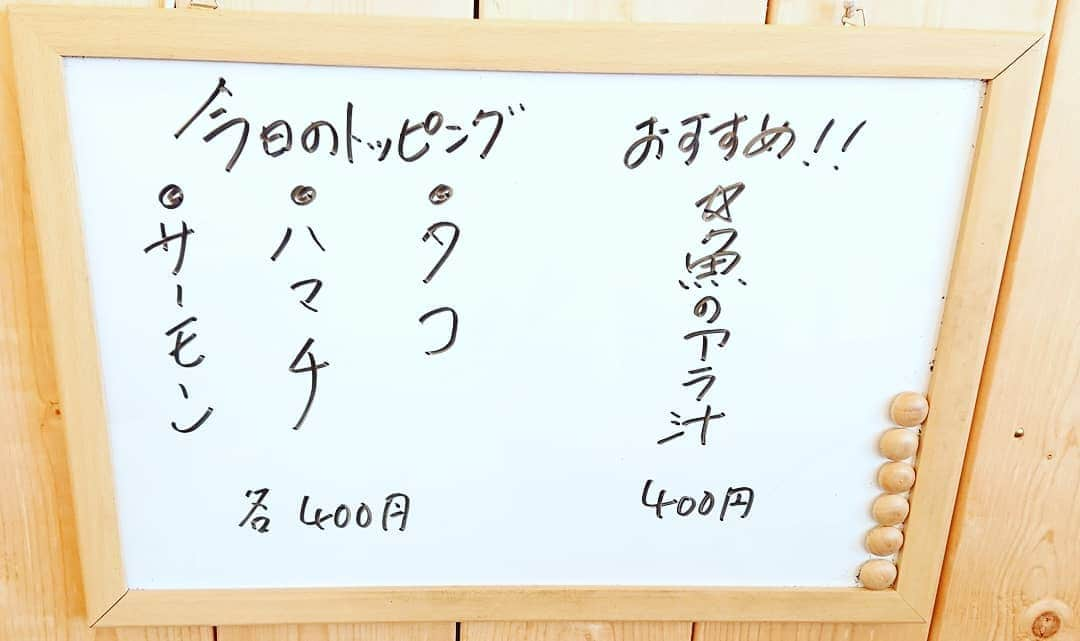 今日のトッピング
◎タコ
◎ハマチ
◎サーモン
各400円
おすすめ!!
☆魚のアラ汁
400円